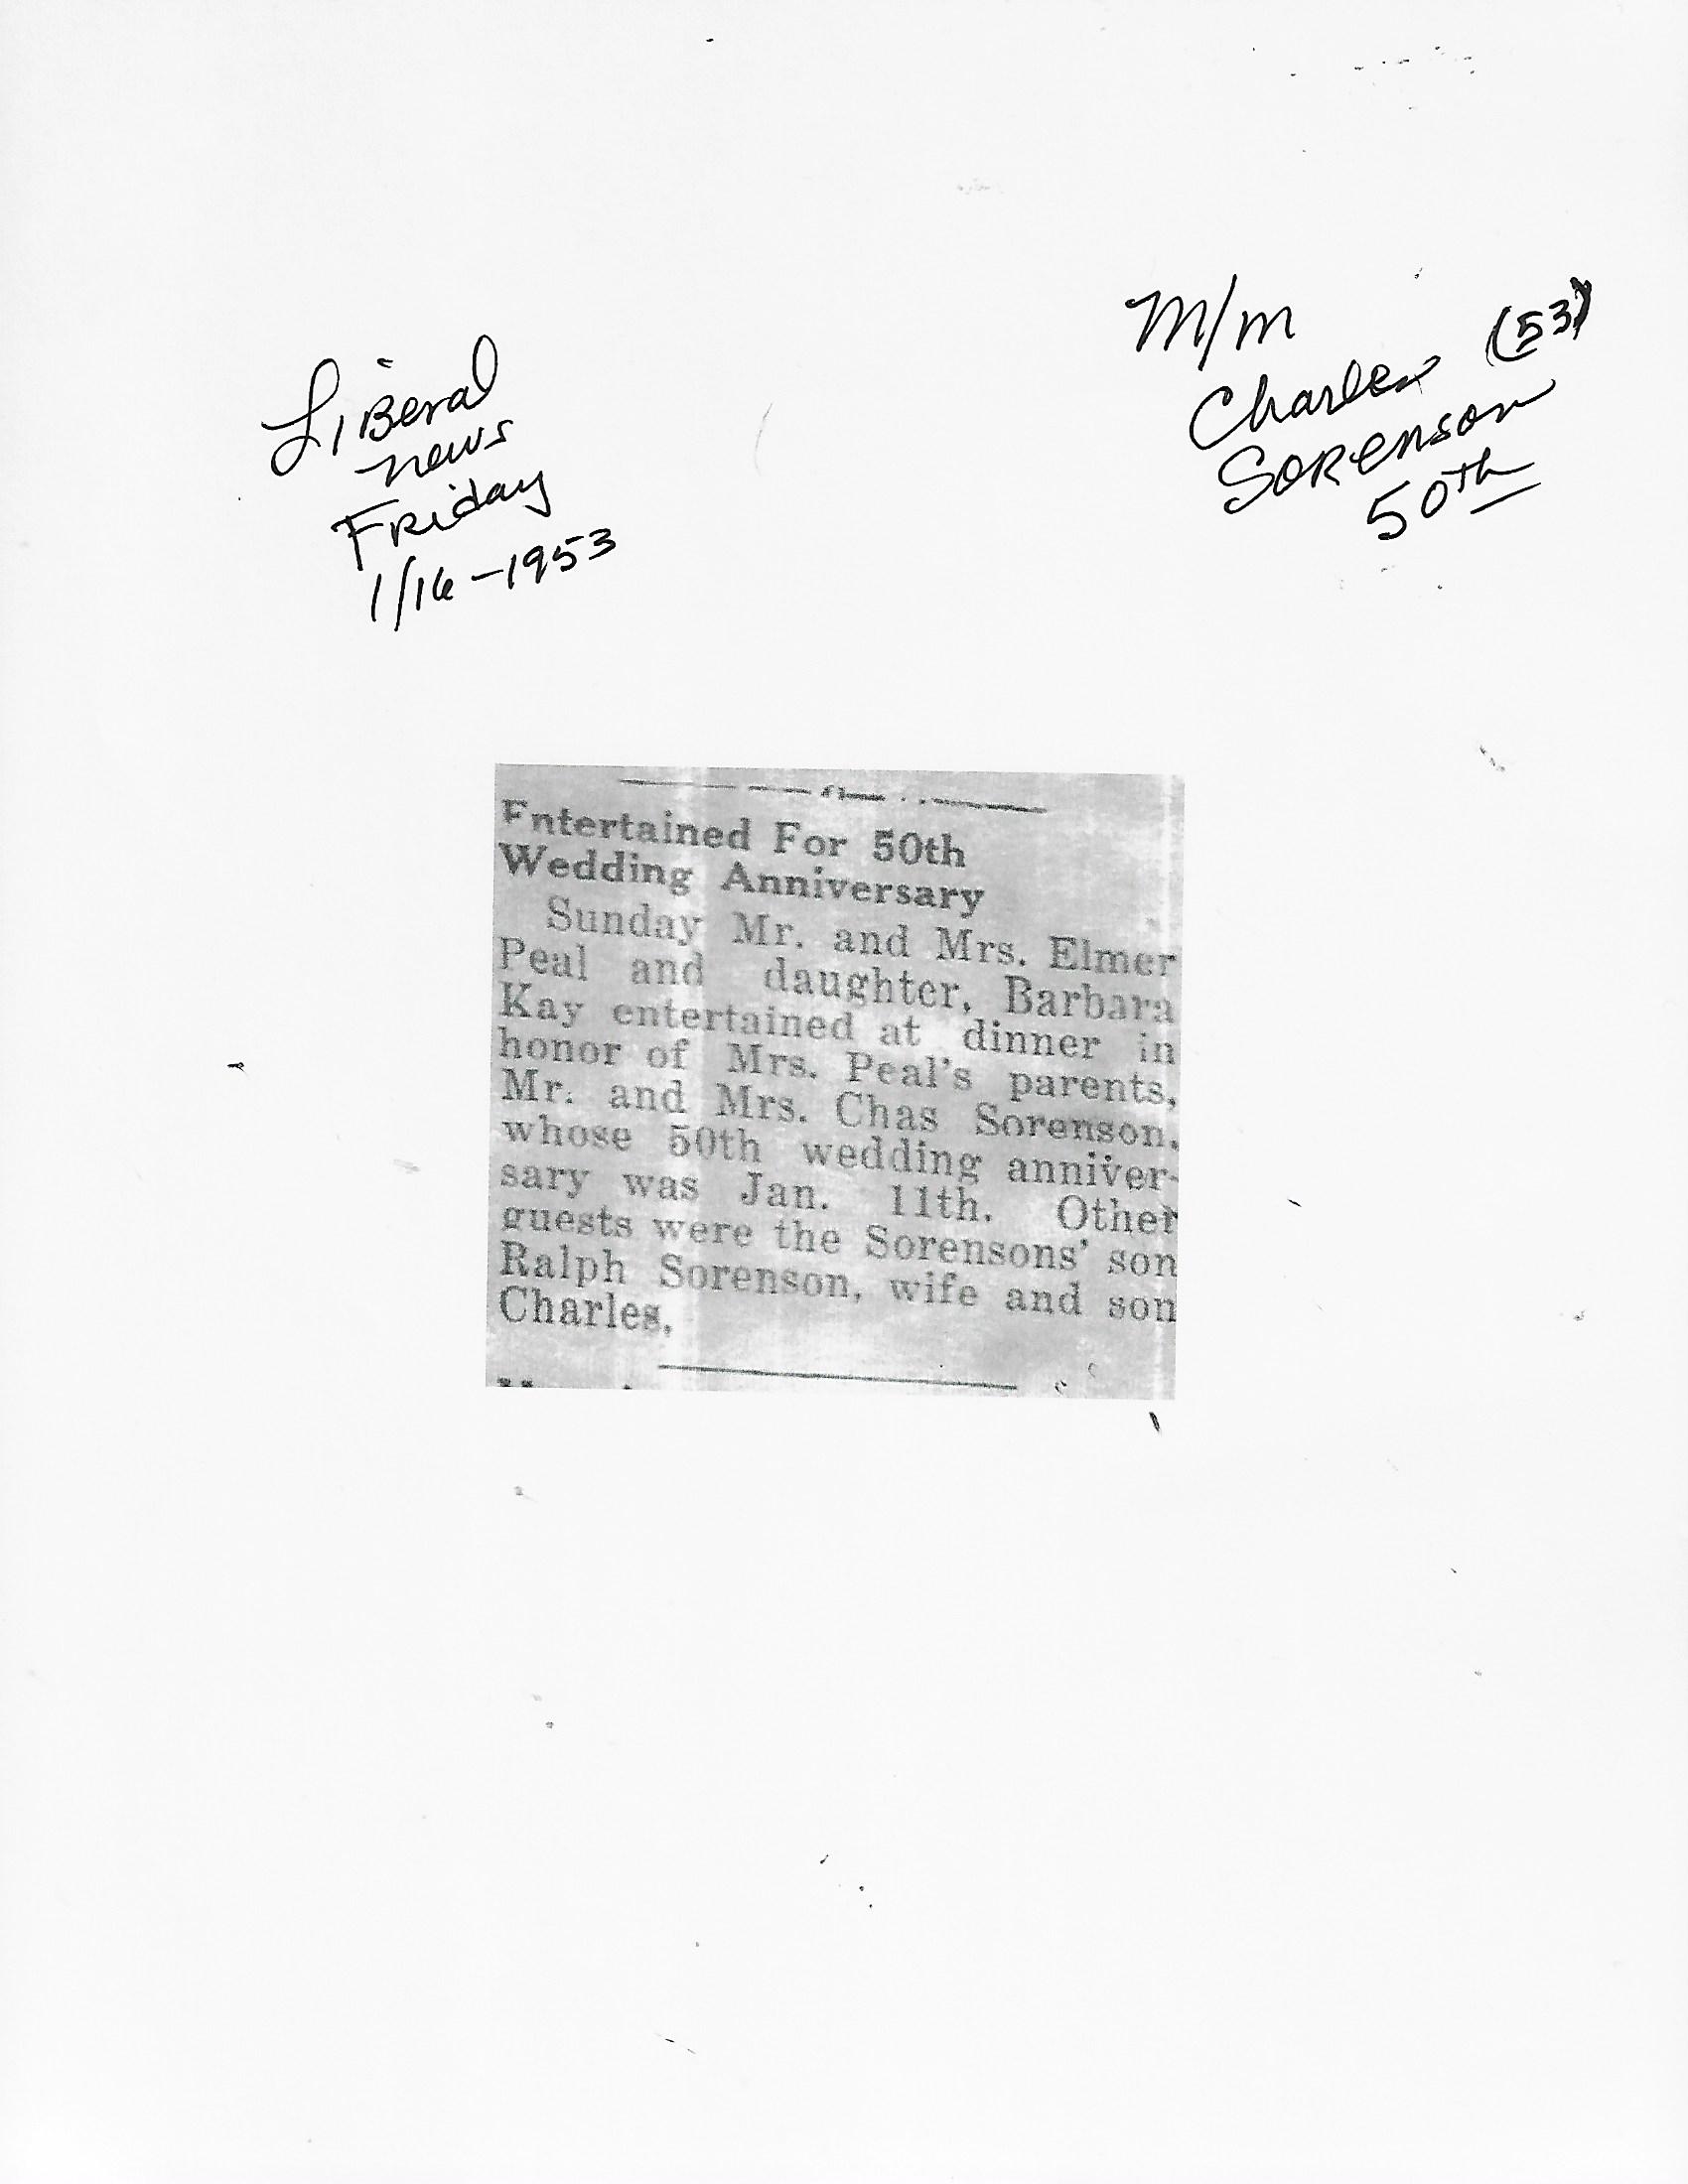 Liberal
news
Friday
1/16-1953
M/m
Charles (53)
Sorenson
50th
Entertained For 50th
Wedding Anniversary
Sunday Mr. and Mrs. Elmer
Peal and daughter, Barbara
Kay entertained at dinner in
honor of Mrs. Peal's parents,
Mr. and Mrs. Chas Sorenson,
whose 50th wedding anniver-
sary was Jan. 11th. Other
guests were the Sorensons' son
Ralph Sorenson, wife and son
Charles.